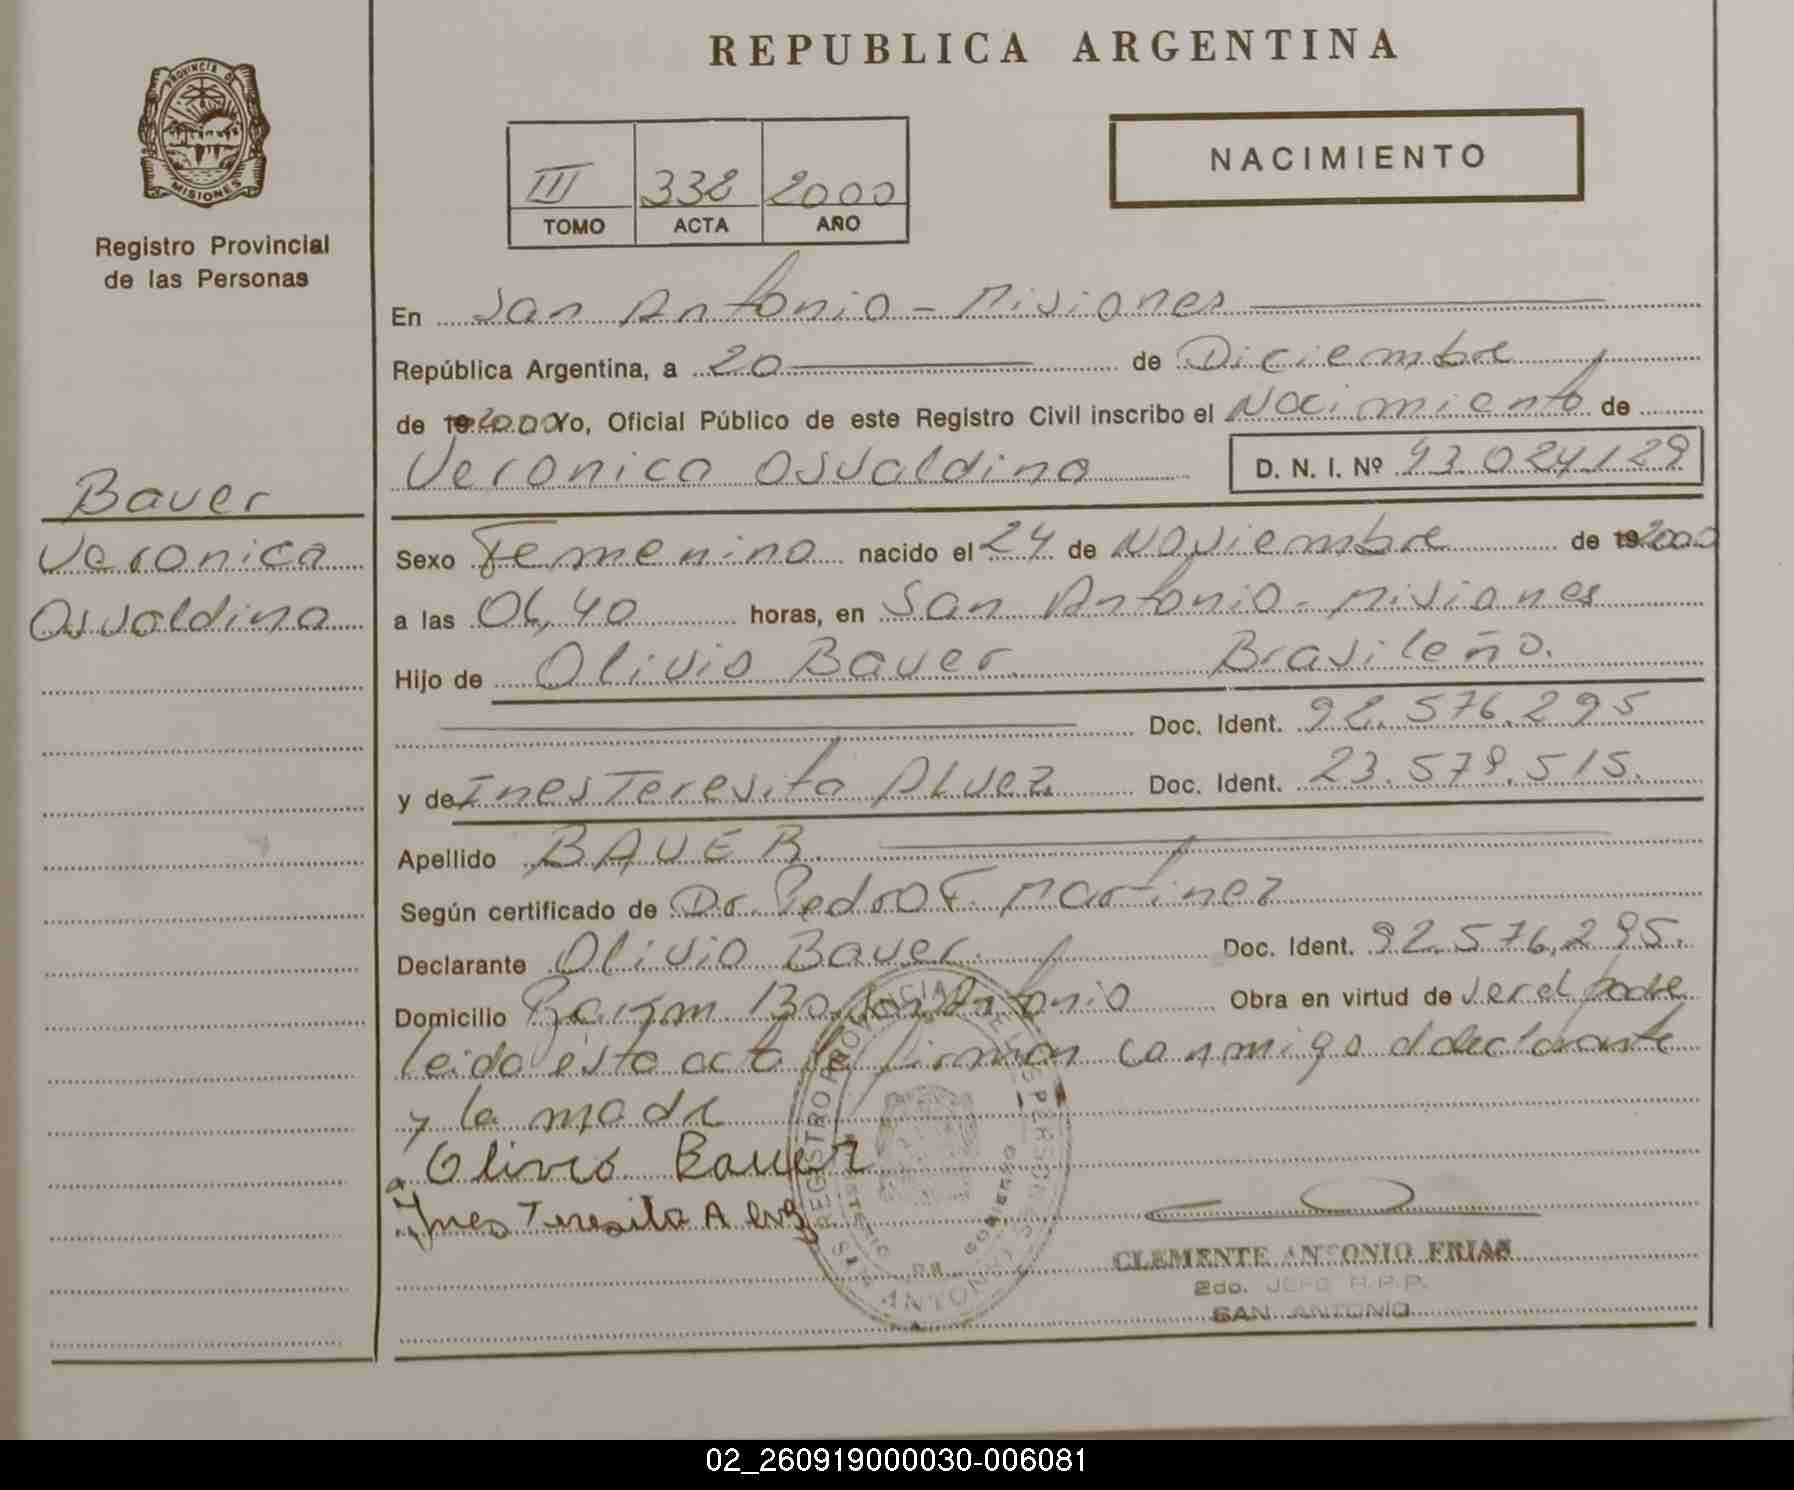 REPUBLICA ARGENTINA
PROVINCIA DE MISIONES
Registro Provincial
de las Personas
NACIMIENTO
III 338 2000
TOMO ACTA AÑO
En San Antonio - Misiones
República Argentina, a 20 de Diciembre
de 19 2000 Yo, Oficial Público de este Registro Civil inscribo el Nacimiento de
Veronica Osvaldina D. N. I. Nº 43 024 129
Bauer
Veronica
Osvaldina
Sexo Femenino nacido el 24 de Noviembre de 19 2000
a las 06,40 horas, en San Antonio - Misiones
Hijo de Olivio Bauer Brasileño.
Doc. Ident. 92.576.295
y de Ines Teresita Alvez Doc. Ident. 23.579.515.
Apellido BAUER
Según certificado de Dr. Pedro F. Martinez
Declarante Olivio Bauer Doc. Ident. 92.576.295.
Domicilio San Antonio Obra en virtud de ser el padre
leido esta acta la firman conmigo el declarante
y la madre
Olivio Bauer
Ines Teresita Alvez
REGISTRO PROVINCIAL DE LAS PERSONAS
MINISTERIO DE GOBIERNO
SAN ANTONIO
CLEMENTE ANTONIO FRIAS
2do. JEFE R.P.P.
SAN ANTONIO
02_260919000030-006081